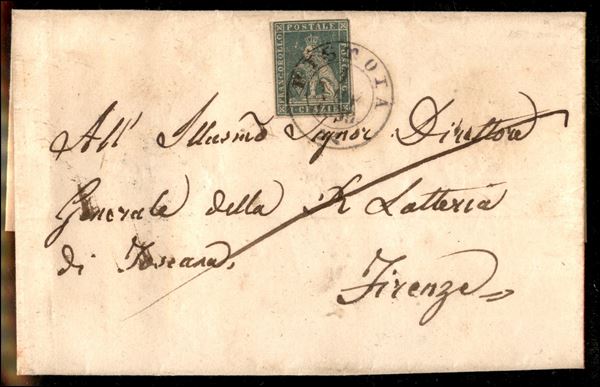 FRANCOBOLLO
POSTALE
TOSCANO
CRAZIE
PISTOIA
All' Illusmo Signor Direttore
Generale della R Lotteria
di Toscana,
Firenze